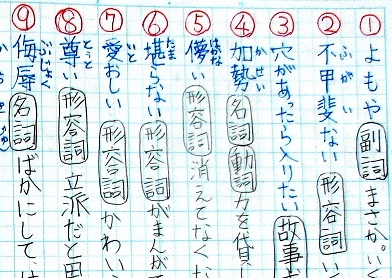 ①よもや 副詞 まさか。い
②不甲斐ない 形容詞 い
ふがい
③穴があったら入りたい 故事
④加勢 名詞 動詞 力を貸
かせい
⑤儚い 形容詞 消えてなくな
はかな
⑥堪らない 形容詞 がまんで
たま
⑦愛おしい 形容詞 かわい
いと
⑧尊い 形容詞 立派だと思
とうと
⑨侮辱 名詞 ばかにして、は
ぶじょく